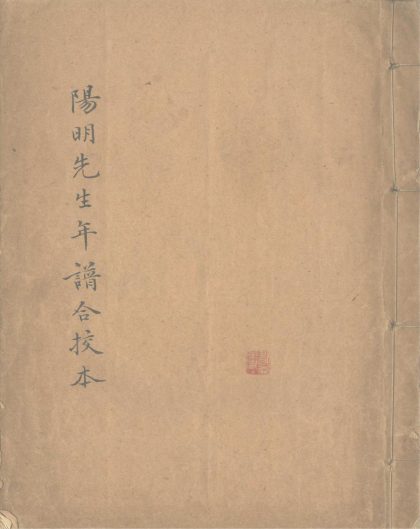 陽明先生年譜合校本